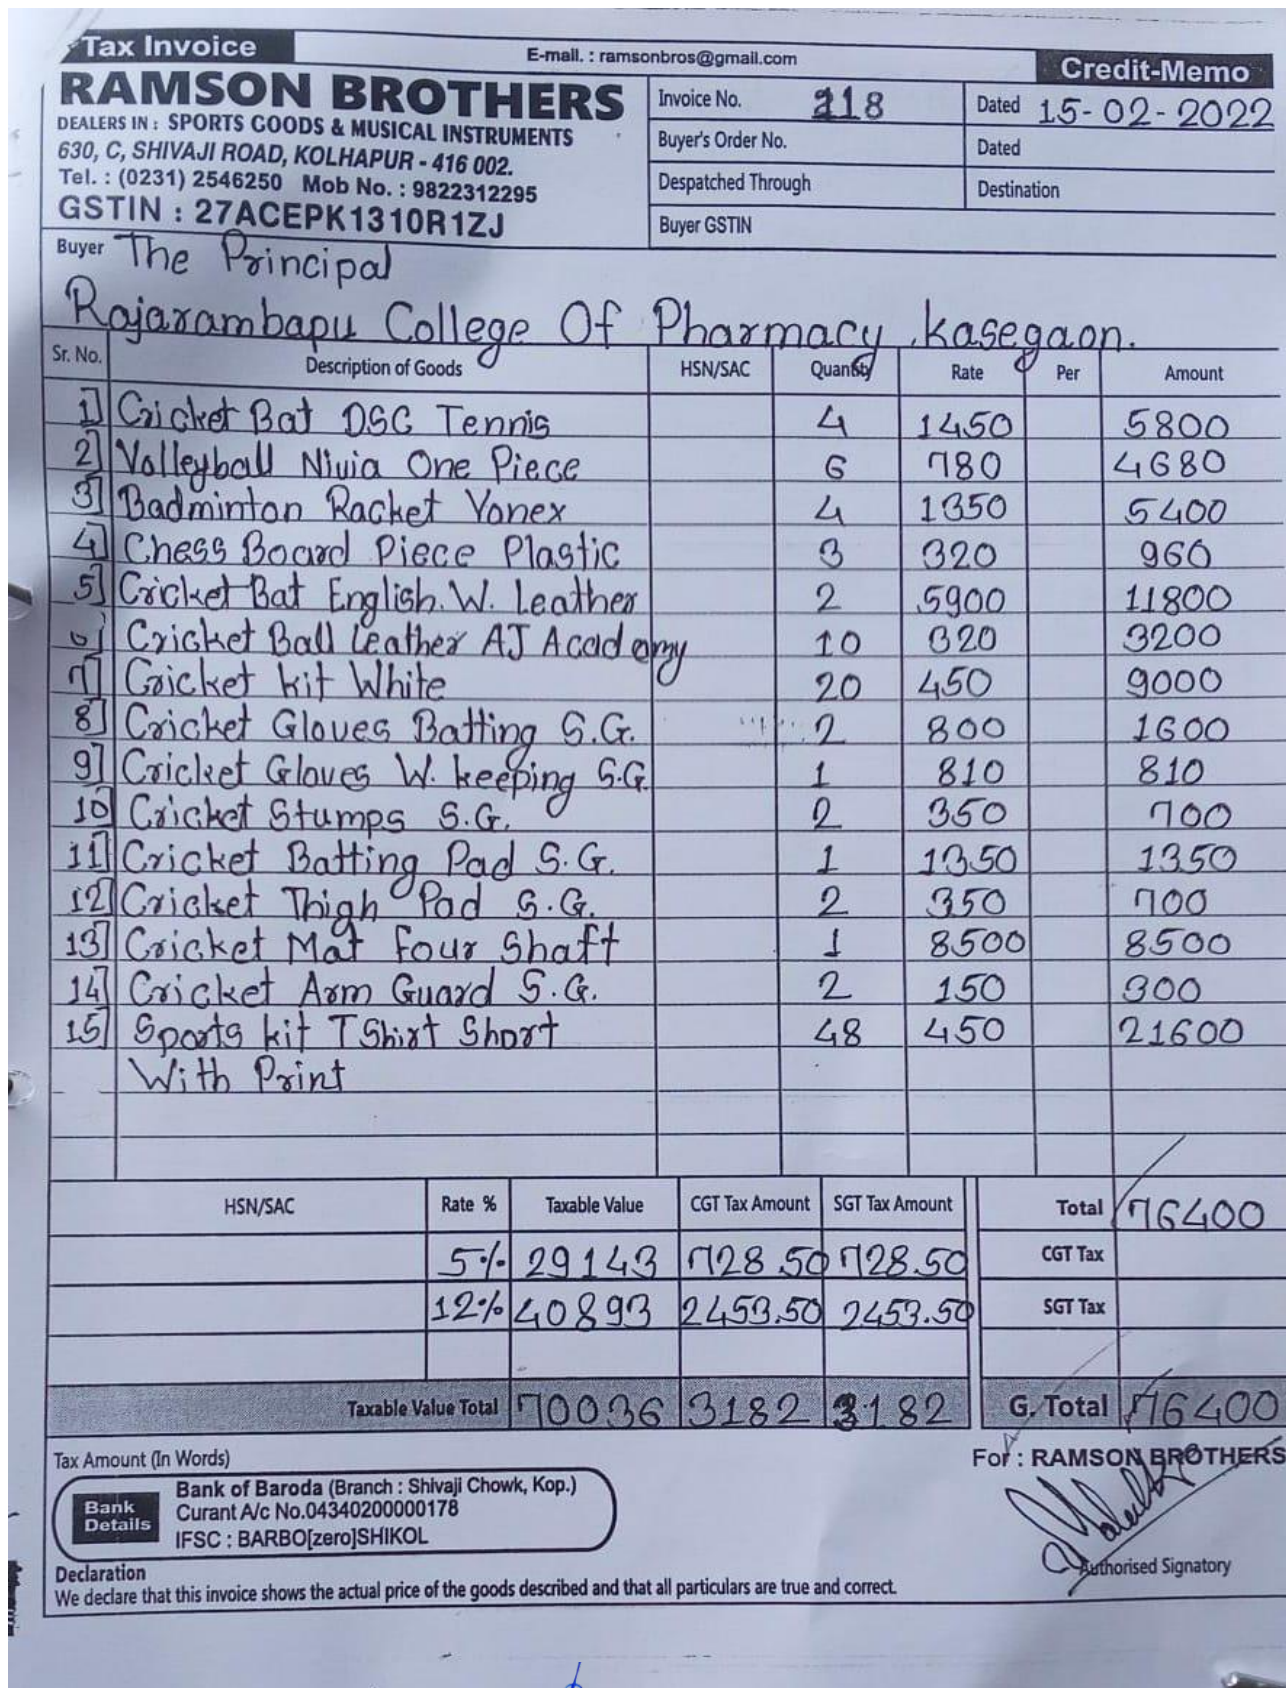 Tax Invoice
E-mail. : ramsonbros@gmail.com
Credit-Memo
RAMSON BROTHERS
DEALERS IN : SPORTS GOODS & MUSICAL INSTRUMENTS
630, C, SHIVAJI ROAD, KOLHAPUR - 416 002.
Tel. : (0231) 2546250 Mob No. : 9822312295
GSTIN : 27ACEPK1310R1ZJ
Invoice No. 218 Dated 15-02-2022
Buyer's Order No. Dated
Despatched Through Destination
Buyer GSTIN
Buyer The Principal
Rajarambapu College Of Pharmacy, Kasegaon.
Sr. No. Description of Goods HSN/SAC Quantity Rate Per Amount
1] Cricket Bat DSC Tennis 4 1450 5800
2] Volleyball Nivia One Piece 6 780 4680
3] Badminton Racket Yonex 4 1350 5400
4] Chess Board Piece Plastic 3 320 960
5] Cricket Bat English. W. Leather 2 5900 11800
6] Cricket Ball Leather AJ Academy 10 320 3200
7] Cricket kit White 20 450 9000
8] Cricket Gloves Batting S.G. 2 800 1600
9] Cricket Gloves W. keeping S.G. 1 810 810
10] Cricket Stumps S.G. 2 350 700
11] Cricket Batting Pad S.G. 1 1350 1350
12] Cricket Thigh Pad S.G. 2 350 700
13] Cricket Mat Four Shaft 1 8500 8500
14] Cricket Arm Guard S.G. 2 150 300
15] Sports kit T Shirt Short 48 450 21600
With Print
HSN/SAC Rate % Taxable Value CGT Tax Amount SGT Tax Amount Total 76400
5% 29143 728.50 728.50 CGT Tax
12% 40893 2453.50 2453.50 SGT Tax
Taxable Value Total 70036 3182 3182 G. Total 76400
Tax Amount (In Words)
For : RAMSON BROTHERS
Bank Details
Bank of Baroda (Branch : Shivaji Chowk, Kop.)
Curant A/c No.04340200000178
IFSC : BARBO[zero]SHIKOL
Authorised Signatory
Declaration
We declare that this invoice shows the actual price of the goods described and that all particulars are true and correct.